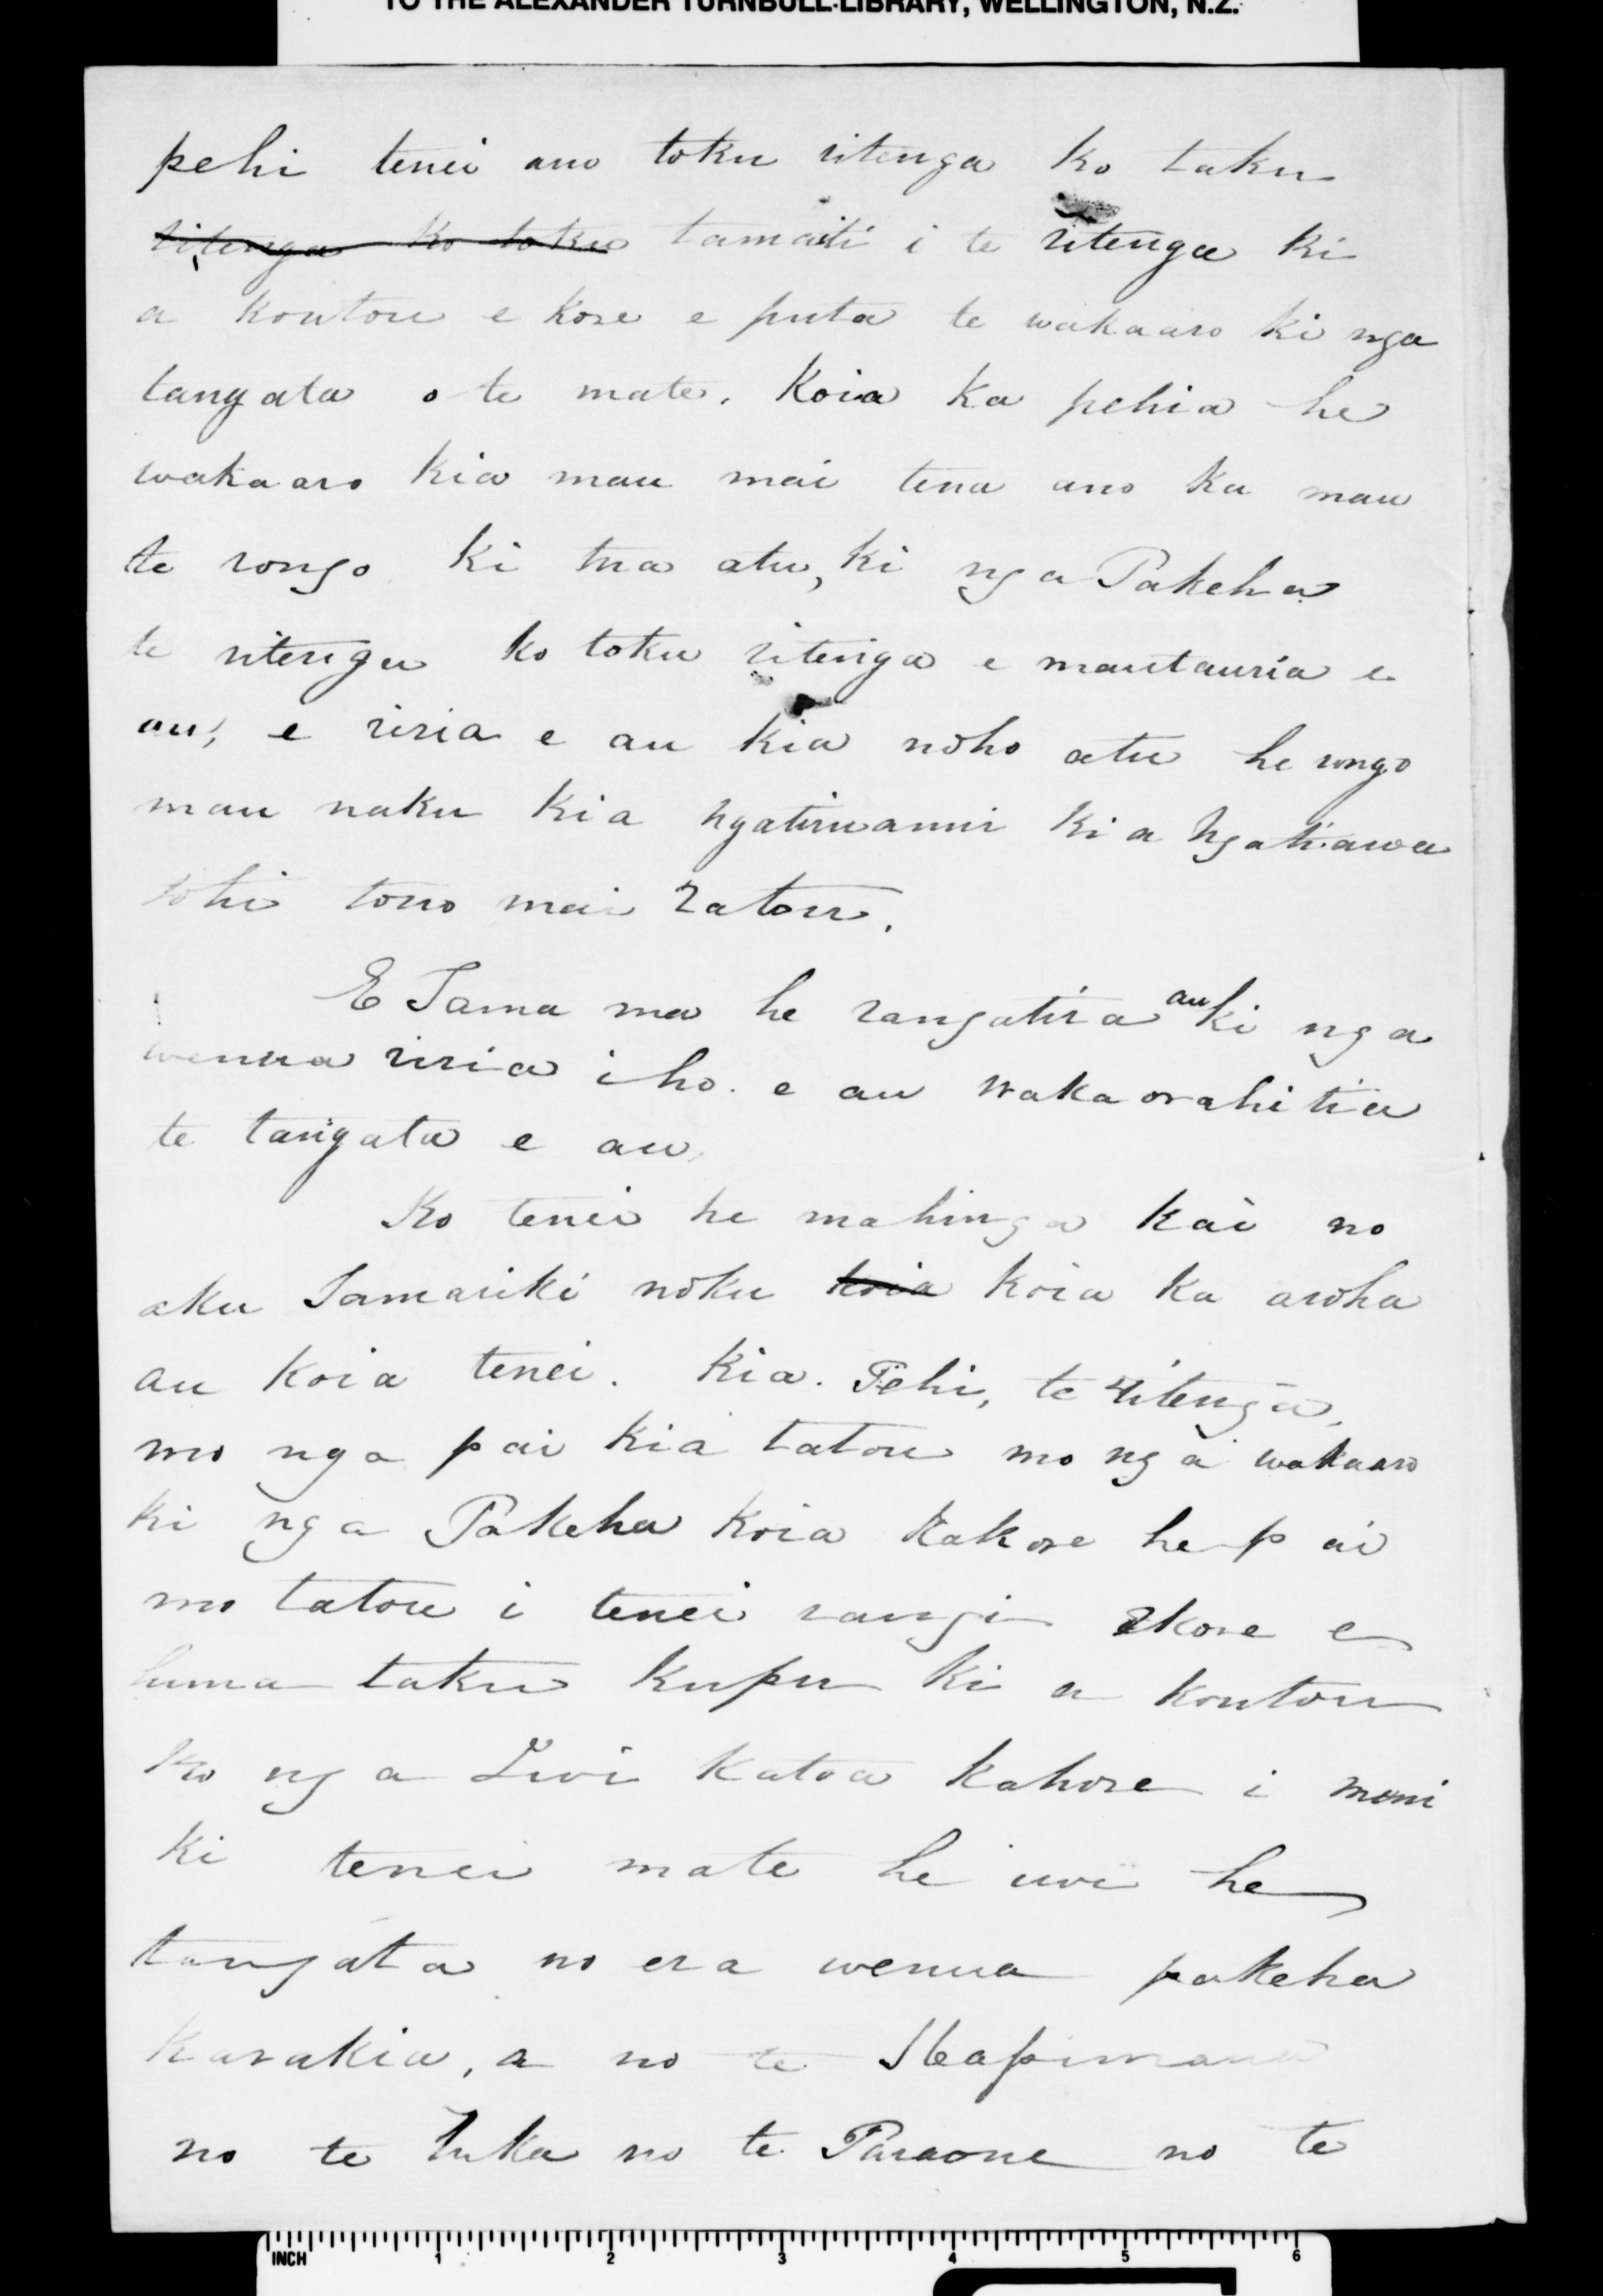 TO THE ALEXANDER TURNBULL LIBRARY, WELLINGTON, N.Z.
pehi tenei ano toku ritenga ko taku
ritenga ko toku tamaiti i te ritenga ki
a koutou e kore e puta te wakaaro ki nga
tangata o te mate. Koia ka pehia he
wakaaro kia mau mai tena ano ka mau
te rongo ki tua atu, ki nga Pakeha
te ritenga ko toku ritenga e mautauria e
au, e riria e au kia noho atu he rongo
mau naku kia Ngatiruanui kia Ngatiawa
tohi tono mai ratou.
E Tama ma he rangatira au ki nga
wenua riria iho e au wakaorahitia
te tangata e au.
Ko tenei he mahinga kai no
aku Tamariki noku koia koia ka aroha
au koia tenei. Kia. Pehi, te ritenga,
mo nga pai kia tatou mo nga wakaaro
ki nga Pakeha koia kakore he pai
mo tatou i tenei rangi ekore e
huna taku kupu ki a koutou
ko nga Iwi katoa kahore i moni
ki tenei mate he iwi he
tangata no era wenua pakeha
karakia, a no te
no te Huka no te Paraone no te
INCH 1 2 3 4 5 6